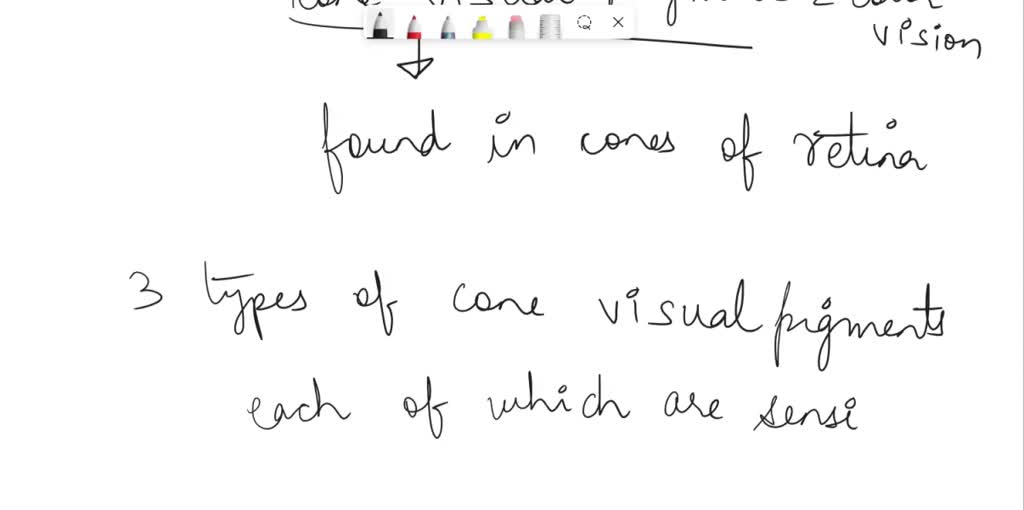 vision
found in cones of retina
3 types of cone visual pigments
each of which are sensi